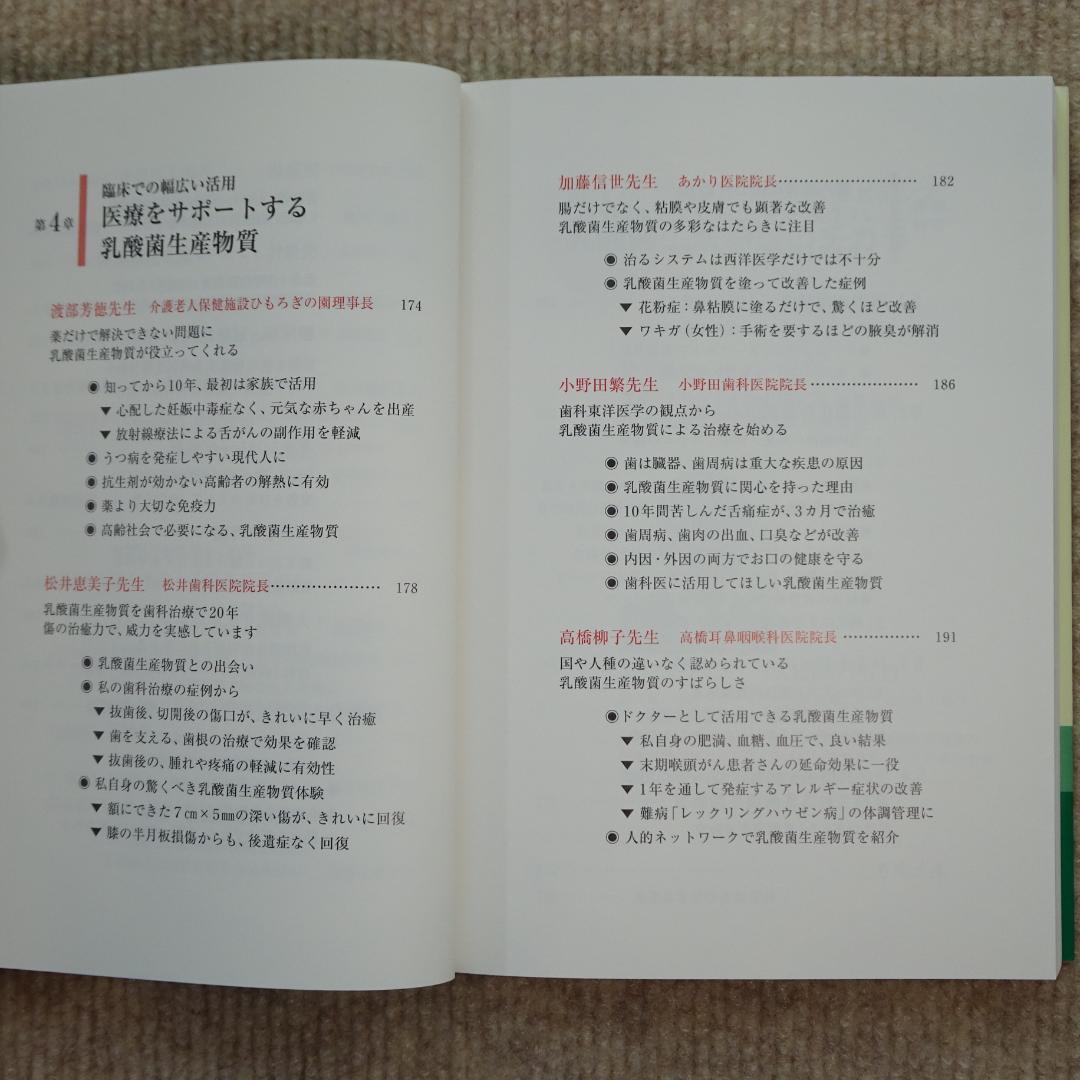 第4章
臨床での幅広い活用
医療をサポートする
乳酸菌生産物質
渡部芳徳先生 介護老人保健施設ひもろぎの園理事長 174
薬だけで解決できない問題に
乳酸菌生産物質が役立ってくれる
◉ 知ってから10年、最初は家族で活用
▼ 心配した妊娠中毒症なく、元気な赤ちゃんを出産
▼ 放射線療法による舌がんの副作用を軽減
◉ うつ病を発症しやすい現代人に
◉ 抗生剤が効かない高齢者の解熱に有効
◉ 薬より大切な免疫力
◉ 高齢社会で必要になる、乳酸菌生産物質
松井恵美子先生 松井歯科医院院長………………… 178
乳酸菌生産物質を歯科治療で20年
傷の治癒力で、威力を実感しています
◉ 乳酸菌生産物質との出会い
◉ 私の歯科治療の症例から
▼ 抜歯後、切開後の傷口が、きれいに早く治癒
▼ 歯を支える、歯根の治療で効果を確認
▼ 抜歯後の、腫れや疼痛の軽減に有効性
◉ 私自身の驚くべき乳酸菌生産物質体験
▼ 額にできた7㎝×5㎜の深い傷が、きれいに回復
▼ 膝の半月板損傷からも、後遺症なく回復
加藤信世先生 あかり医院院長……………………… 182
腸だけでなく、粘膜や皮膚でも顕著な改善
乳酸菌生産物質の多彩なはたらきに注目
◉ 治るシステムは西洋医学だけでは不十分
◉ 乳酸菌生産物質を塗って改善した症例
▼ 花粉症：鼻粘膜に塗るだけで、驚くほど改善
▼ ワキガ（女性）：手術を要するほどの腋臭が解消
小野田繁先生 小野田歯科医院院長………………… 186
歯科東洋医学の観点から
乳酸菌生産物質による治療を始める
◉ 歯は臓器、歯周病は重大な疾患の原因
◉ 乳酸菌生産物質に関心を持った理由
◉ 10年間苦しんだ舌痛症が、3カ月で治癒
◉ 歯周病、歯肉の出血、口臭などが改善
◉ 内因・外因の両方でお口の健康を守る
◉ 歯科医に活用してほしい乳酸菌生産物質
高橋柳子先生 高橋耳鼻咽喉科医院院長 …………… 191
国や人種の違いなく認められている
乳酸菌生産物質のすばらしさ
◉ドクターとして活用できる乳酸菌生産物質
▼ 私自身の肥満、血糖、血圧で、良い結果
▼ 末期喉頭がん患者さんの延命効果に一役
▼ 1年を通して発症するアレルギー症状の改善
▼ 難病「レックリングハウゼン病」の体調管理に
◉ 人的ネットワークで乳酸菌生産物質を紹介